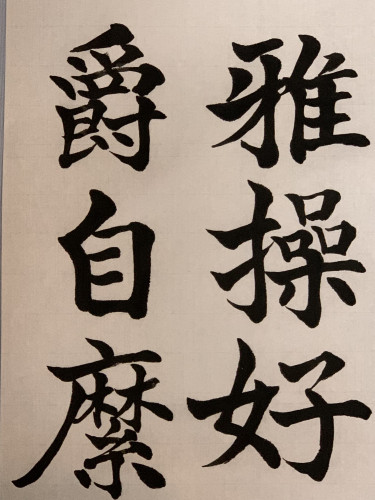 雅操好
爵自縻